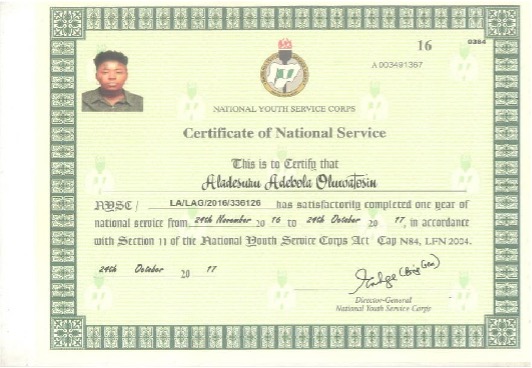 16
0384
A 003491367
NATIONAL YOUTH SERVICE CORPS
Certificate of National Service
This is to Certify that
Aladesuru Adebola Oluwatosin
NYSC / LA/LAG/2016/336126 has satisfactorily completed one year of
national service from 24th November 20 16 to 24th October 20 17, in accordance
with Section 11 of the National Youth Service Corps Act Cap N84, LFN 2004.
24th October 20 17
(Brig Gen)
Director-General
National Youth Service Corps